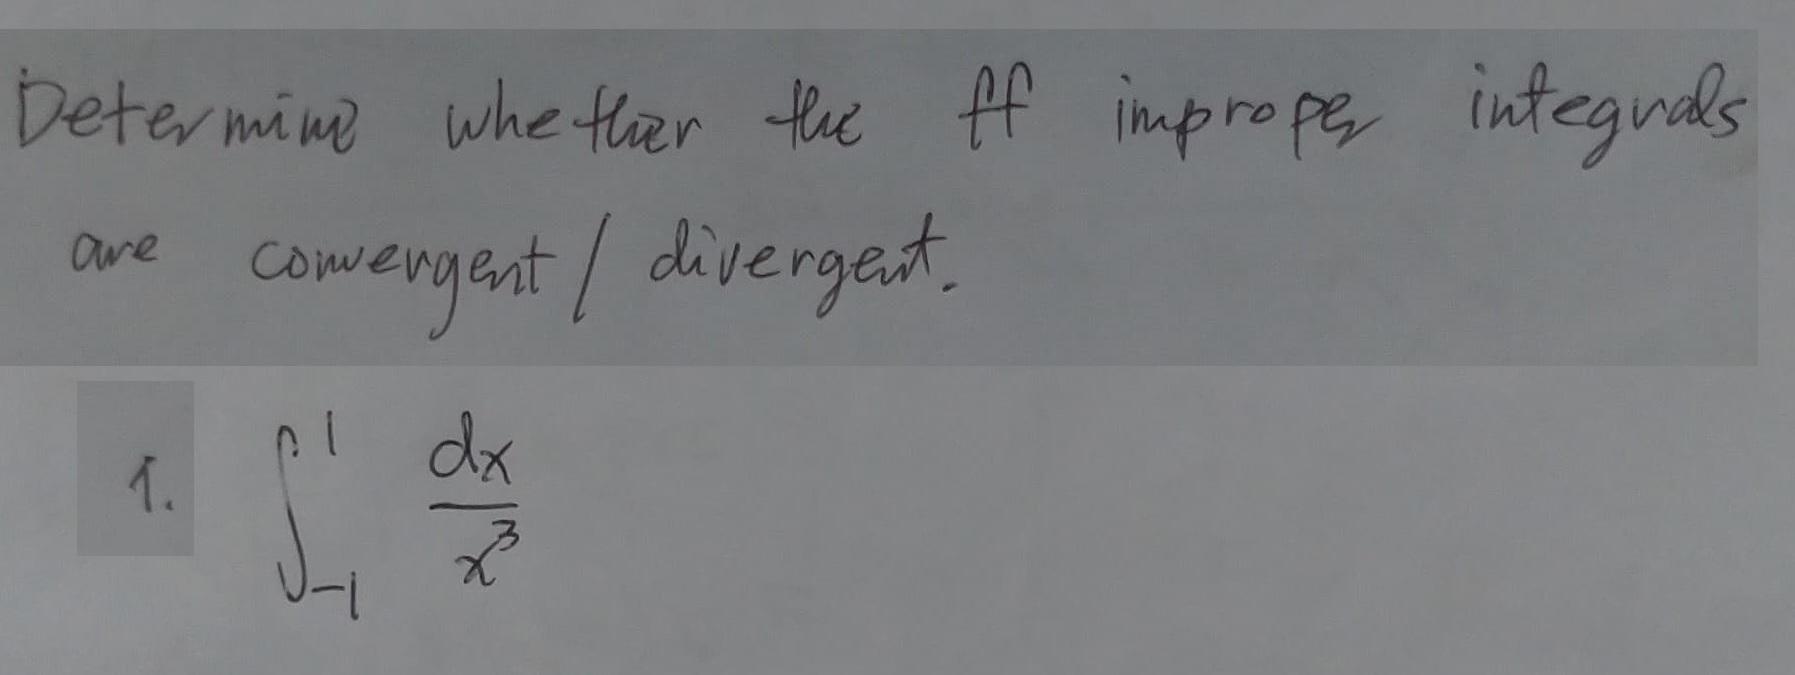 Determine whether the ff improper integrals
are convergent / divergent.
1. ∫_{-1}^{1} dx/x³